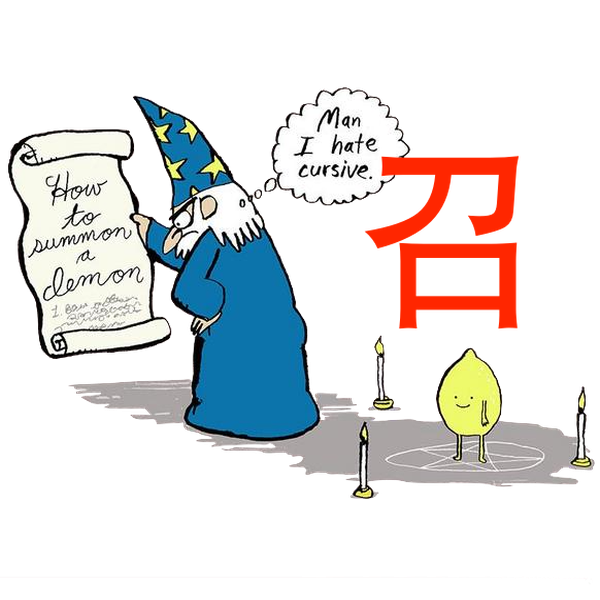 How
to
summon
a
demon
Man
I hate
cursive.
召